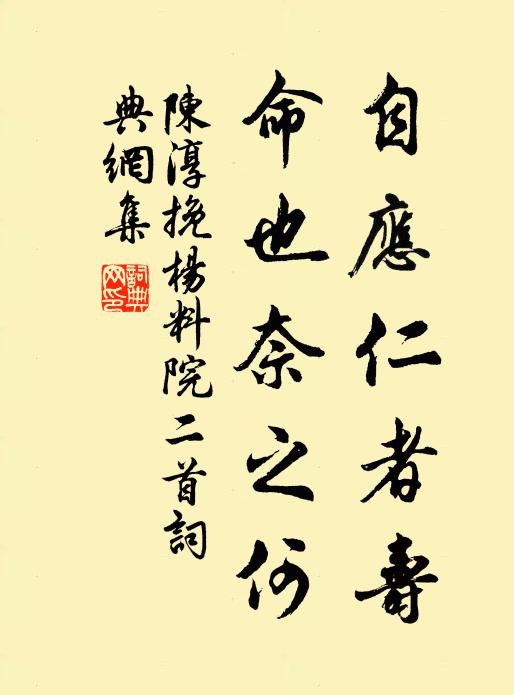 自應仁者壽
命也奈之何
陳淳挽楊料院二首詞
典網集
詞典
网印